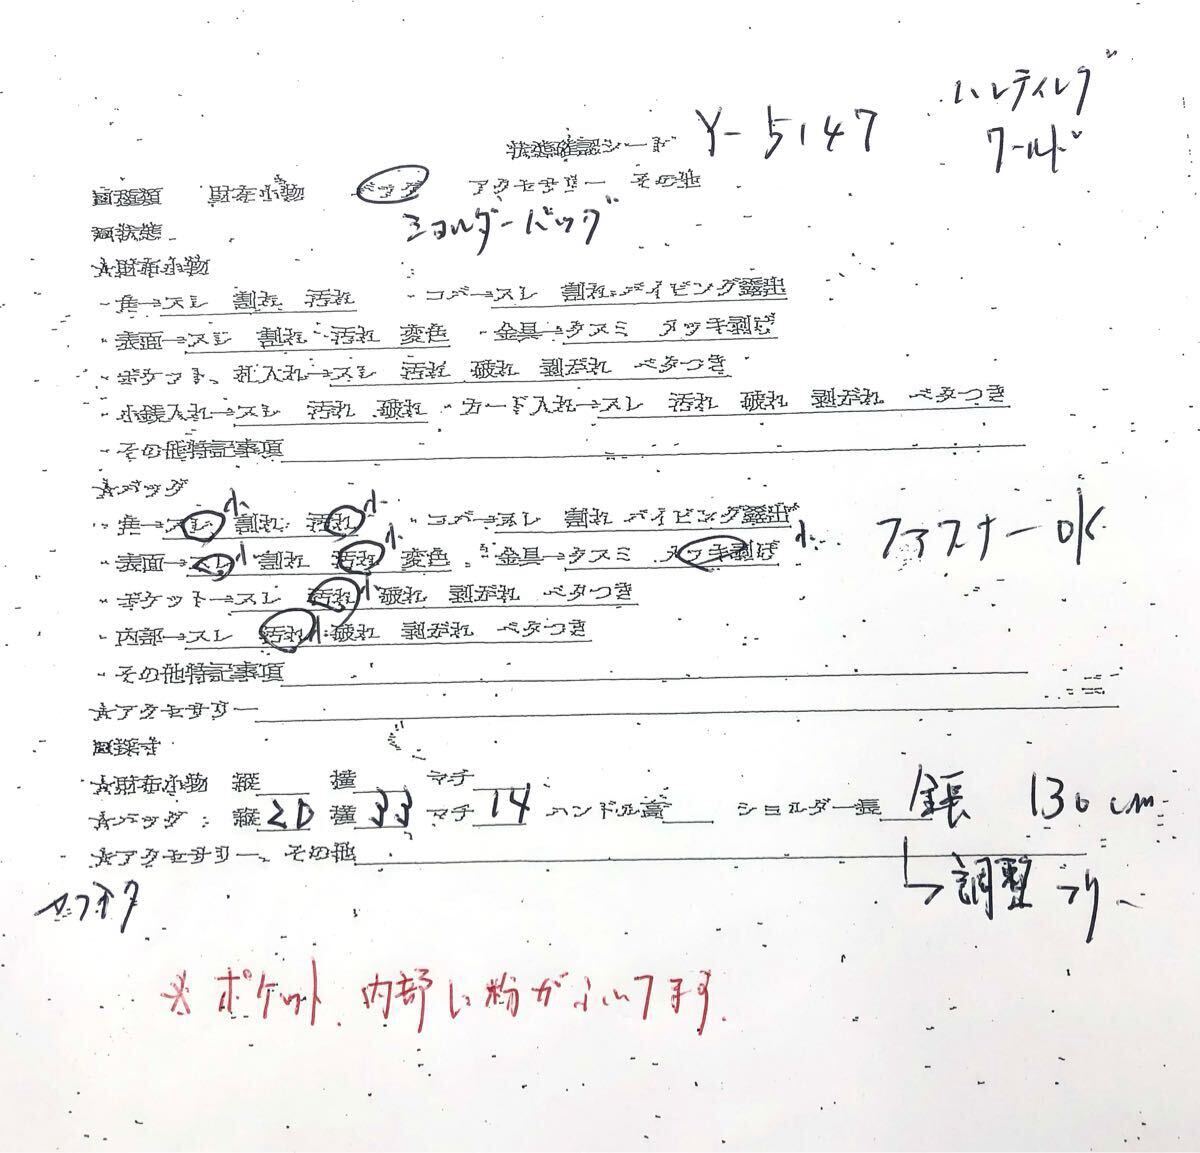 ハンティング
ワールド
状態確認シート Y-5147
□種類 財布小物 バッグ アクセサリー その他
□状態 ショルダーバッグ
★財布小物
・角→スレ 割れ 汚れ ・コバ→スレ 割れ パイピング露出
・表面→スレ 割れ 汚れ 変色 ・金具→クスミ メッキ剥げ
・ポケット、札入れ→スレ 汚れ 破れ 剥がれ ベタつき
・小銭入れ→スレ 汚れ 破れ ・カード入れ→スレ 汚れ 破れ 剥がれ ベタつき
・その他特記事項
★バッグ
・角→スレ小 割れ 汚れ小 ・コバ→スレ 割れ パイピング露出
・表面→スレ小 割れ 汚れ小 変色 ・金具→クスミ メッキ剥げ小 ファスナーOK
・ポケット→スレ 汚れ小 破れ 剥がれ ベタつき
・内部→スレ 汚れ小 破れ 剥がれ ベタつき
・その他特記事項
★アクセサリー
□採寸
★財布小物 縦 横 マチ
★バッグ: 縦20 横33 マチ14 ハンドル高 ショルダー長 全長 130cm
★アクセサリー、その他 ↳調整
※ポケット、内部に粉がふいてます。